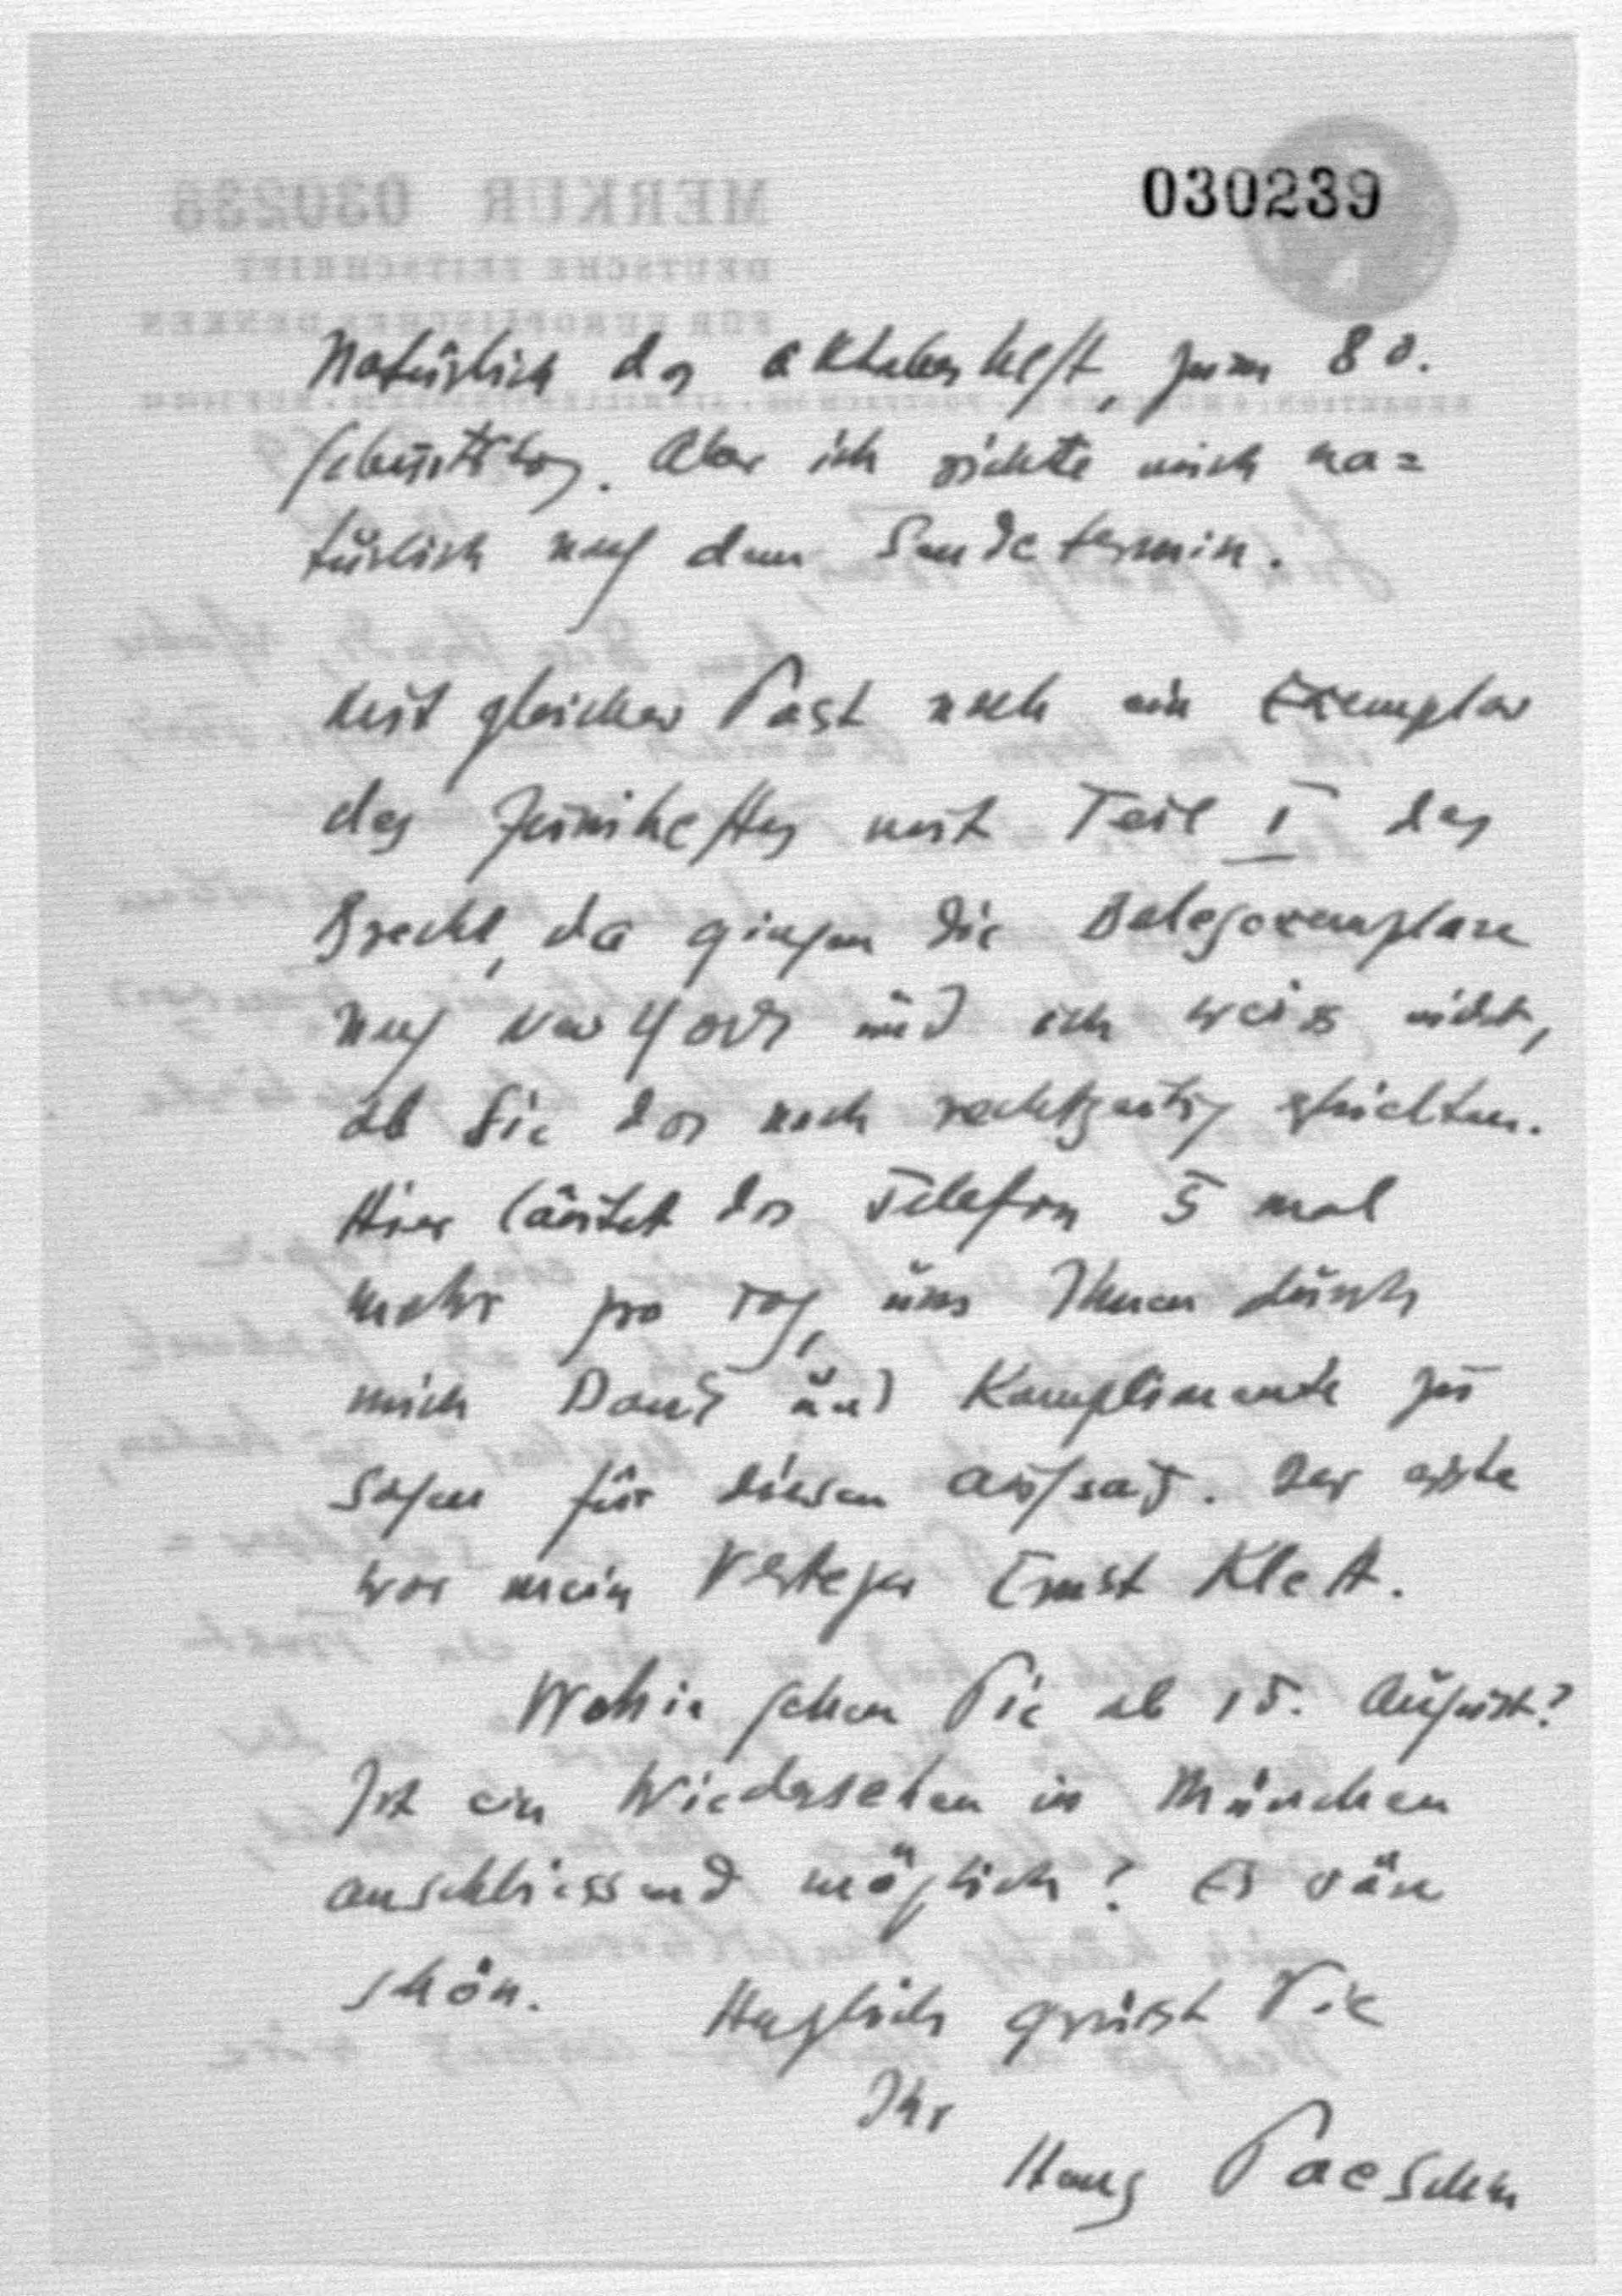 030239
Natürlich das Oktoberheft, zum 80.
Geburtstag. Aber ich richte mich na=
türlich nach dem Sendetermin.
Mit gleicher Post noch ein Exemplar
des Juniheftes mit Teil I des
Brecht, da gingen die Belegexemplare
nach New York und ich weiss nicht,
ob Sie das noch rechtzeitig erhielten.
Hier läutet das Telefon 5 mal
mehr pro Tag, um Ihnen durch
mich Dank und Komplimente zu
sagen für diesen Aufsatz. Der erste
war mein Verleger Ernst Klett.
Wohin gehen Sie ab 15. August?
Ist ein Wiedersehen in München
anschliessend möglich? Es wäre
schön. Herzlich grüsst Sie
Ihr
Hans Paeschke